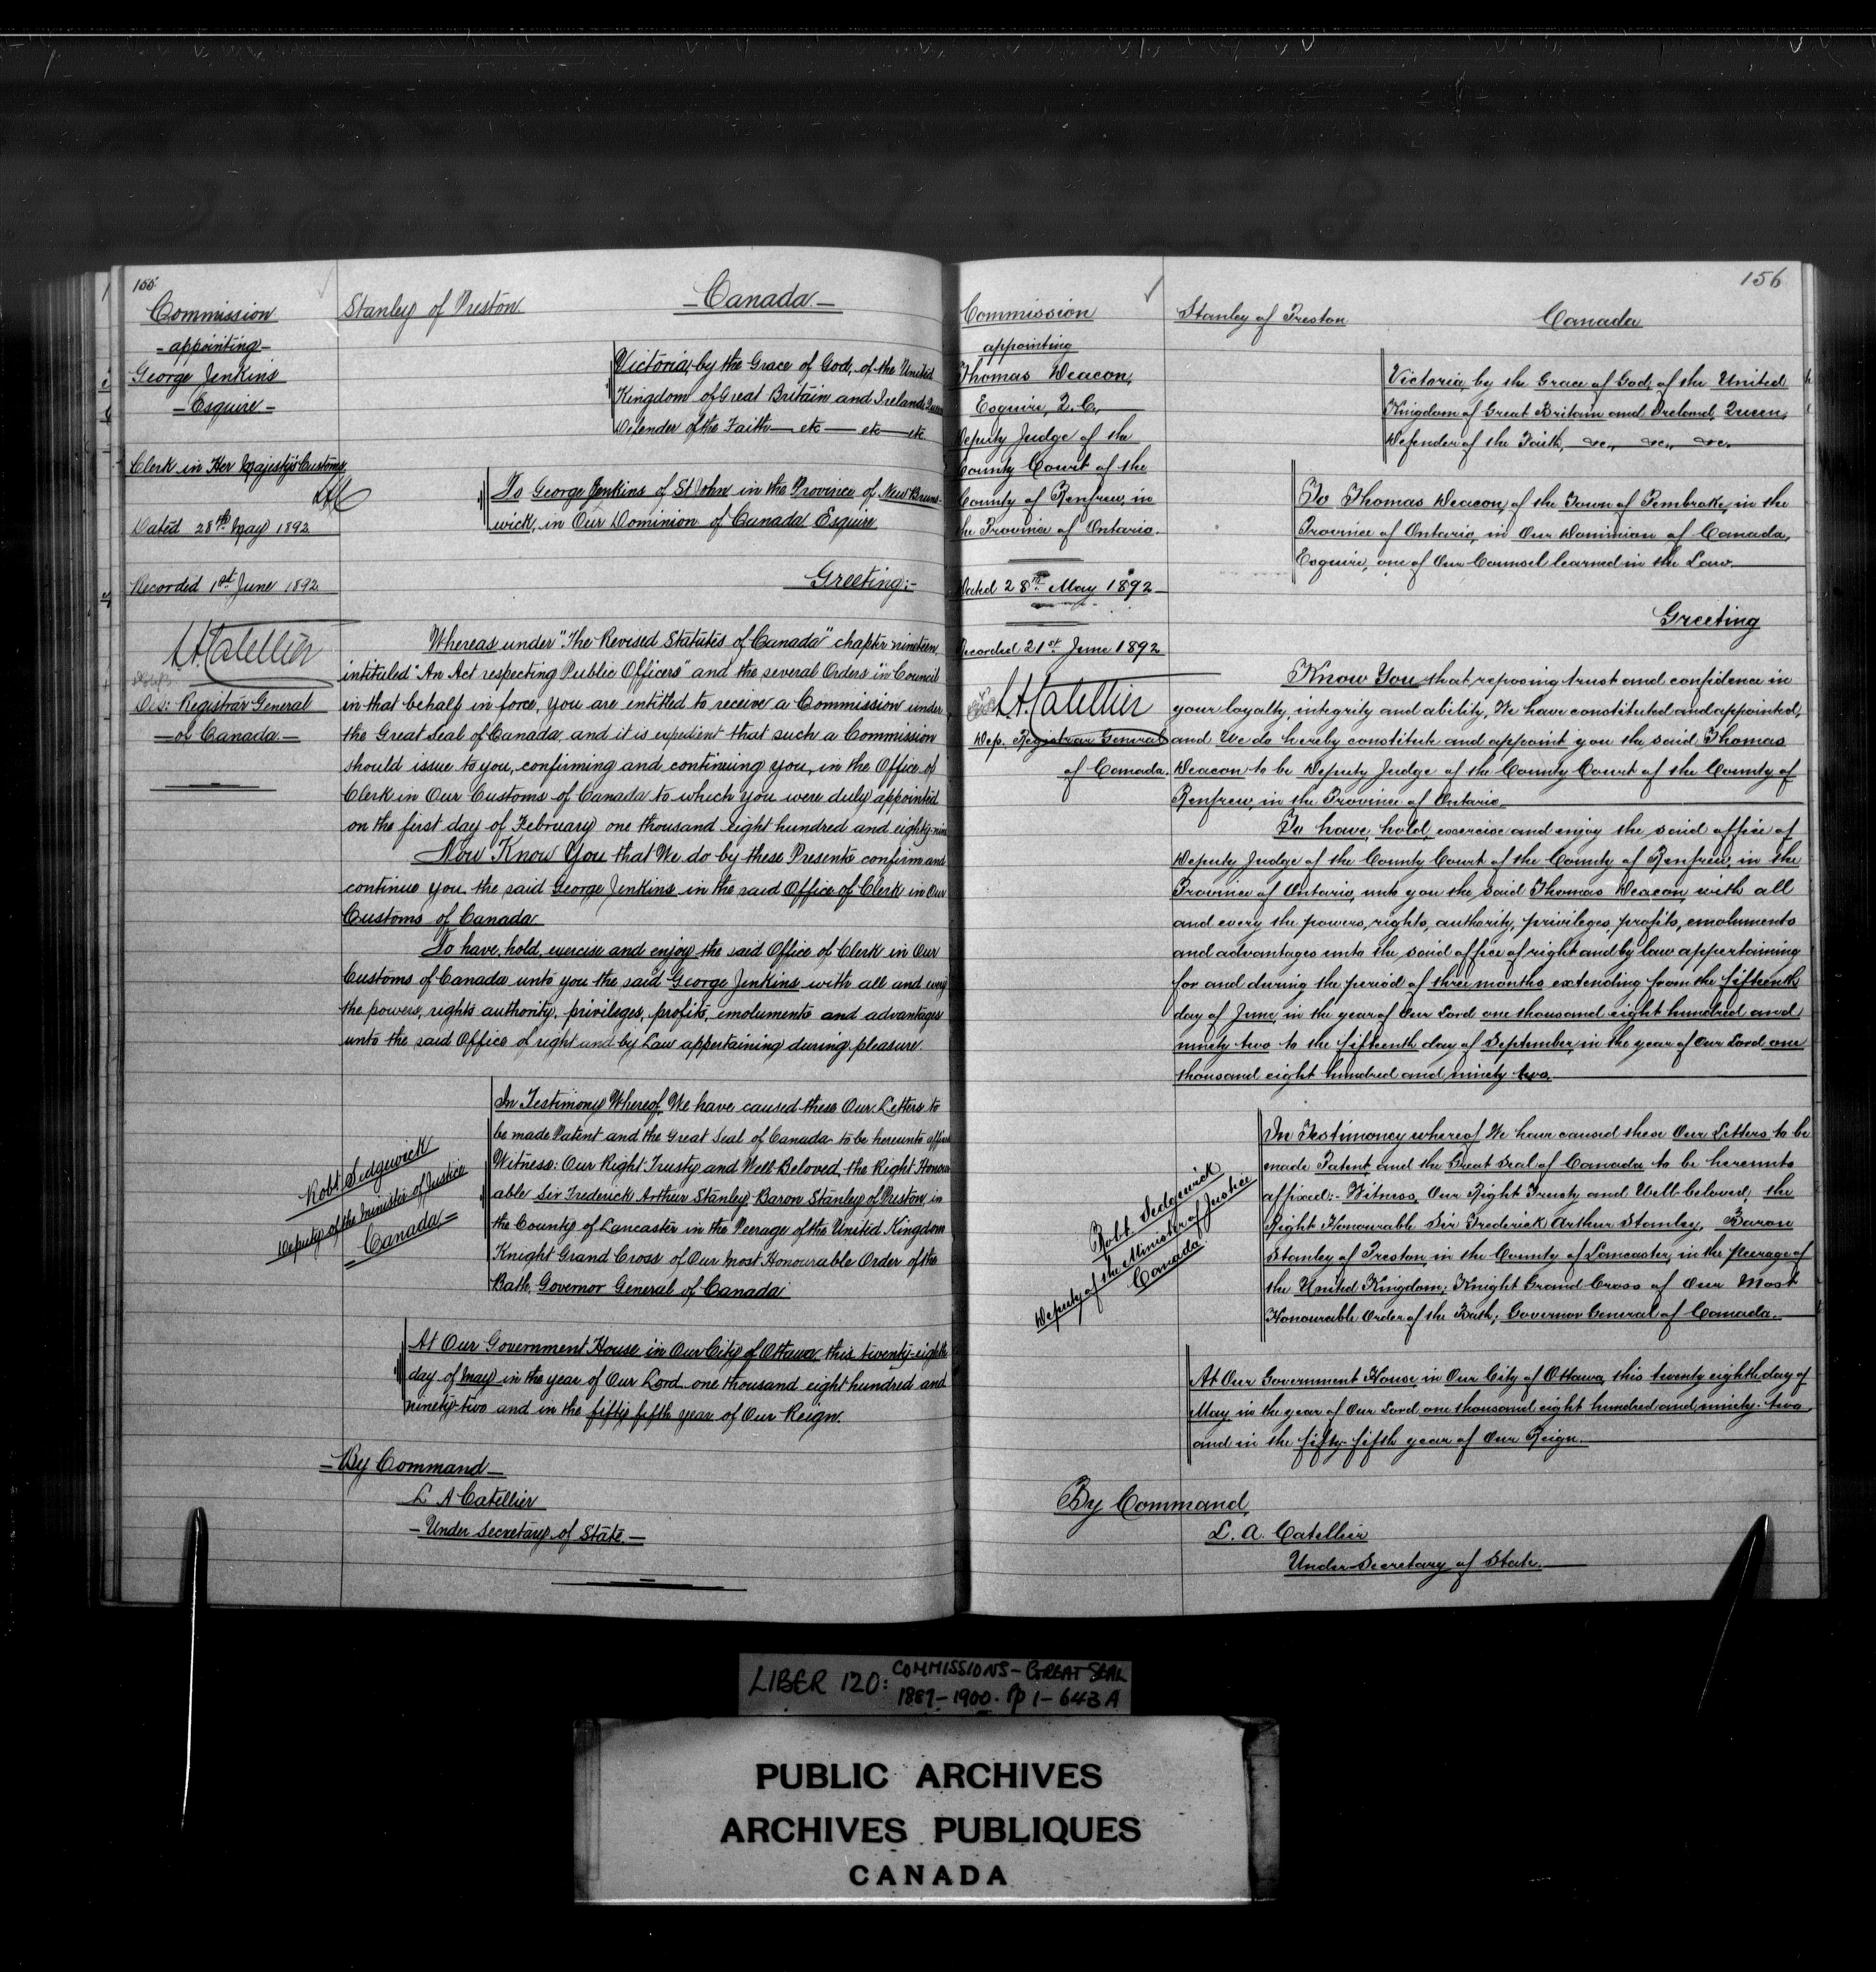 155
Commission
- appointing -
George Jenkins
- Esquire -
Clerk in Her Majesty's Customs
LAC
Dated 28th May 1892
Recorded 1st June 1892
L.A. Catellier
Dep: Registrar General
- of Canada -
Stanley of Preston
- Canada -
Victoria, by the Grace of God, of the United
Kingdom of Great Britain and Ireland, Queen
Defender of the Faith — etc — etc — etc
To George Jenkins of St John in the Province of New Bruns-
wick, in Our Dominion of Canada Esquire
Greeting:-
Whereas under "The Revised Statutes of Canada" chapter nineteen,
intituled "An Act respecting Public Officers" and the several Orders in Council
in that behalf in force, you are entitled to receive a Commission under
the Great Seal of Canada, and it is expedient that such a Commission
should issue to you, confirming and continuing you, in the Office of
Clerk in Our Customs of Canada to which you were duly appointed
on the first day of February one thousand eight hundred and eighty-nine
Now Know You that We do by these Presents confirm and
continue you the said George Jenkins in the said Office of Clerk in Our
Customs of Canada
To have, hold, exercise and enjoy the said Office of Clerk in Our
Customs of Canada unto you the said George Jenkins with all and every
the powers, rights authority, privileges, profits, emoluments and advantages
unto the said Office of right and by Law appertaining during pleasure.
In Testimony Whereof, We have caused these Our Letters to
be made Patent and the Great Seal of Canada to be hereunto affixed
Witness: Our Right Trusty and Well-Beloved the Right Honour-
able Sir Frederick Arthur Stanley Baron Stanley of Preston, in
the County of Lancaster in the Peerage of the United Kingdom
Knight Grand Cross of Our most Honourable Order of the
Bath, Governor General of Canada
Robt Sedgewick
Deputy of the Minister of Justice
Canada
At Our Government House in Our City of Ottawa, this twenty-eighth
day of May in the year of Our Lord one thousand eight hundred and
ninety-two and in the fifty fifth year of Our Reign.
- By Command -
L A Catellier
- Under Secretary of State. -
156
Commission
appointing
Thomas Deacon,
Esquire, Q.C.,
Deputy Judge of the
County Court of the
County of Renfrew, in
the Province of Ontario.
Dated 28th May 1892
Recorded 21st June 1892
L.A. Catellier
Dep. Registrar General
of Canada.
Stanley of Preston
Canada
Victoria, by the Grace of God, of the United
Kingdom of Great Britain and Ireland, Queen,
Defender of the Faith, &c., &c., &c.
To Thomas Deacon, of the Town of Pembroke, in the
Province of Ontario, in Our Dominion of Canada,
Esquire, one of Our Counsel learned in the Law.
Greeting
Know You that, reposing trust and confidence in
your loyalty, integrity and ability, We have constituted and appointed,
and We do hereby constitute and appoint you the said Thomas
Deacon to be Deputy Judge of the County Court of the County of
Renfrew in the Province of Ontario
To have, hold, exercise and enjoy the said office of
Deputy Judge of the County Court of the County of Renfrew, in the
Province of Ontario, unto you the said Thomas Deacon, with all
and every the powers, rights, authority, privileges, profits, emoluments
and advantages unto the said office of right and by law appertaining
for and during the period of three months extending from the fifteenth
day of June, in the year of Our Lord one thousand eight hundred and
ninety two to the fifteenth day of September, in the year of Our Lord one
thousand eight hundred and ninety two.
In Testimony whereof We have caused these Our Letters to be
made Patent and the Great Seal of Canada to be hereunto
affixed:- Witness, Our Right Trusty and Well-beloved, the
Right Honourable Sir Frederick Arthur Stanley, Baron
Stanley of Preston, in the County of Lancaster, in the Peerage of
the United Kingdom; Knight Grand Cross of Our Most
Honourable Order of the Bath; Governor General of Canada.
Robt. Sedgewick
Deputy of the Minister of Justice
Canada
At Our Government House, in Our City of Ottawa, this twenty eighth day of
May in the year of Our Lord one thousand eight hundred and ninety-two
and in the fifty-fifth year of Our Reign.
By Command,
L. A. Catellier
Under-Secretary of State.
LIBER 120: COMMISSIONS - GREAT SEAL
1889-1900. Pp 1-643A
PUBLIC ARCHIVES
ARCHIVES PUBLIQUES
CANADA